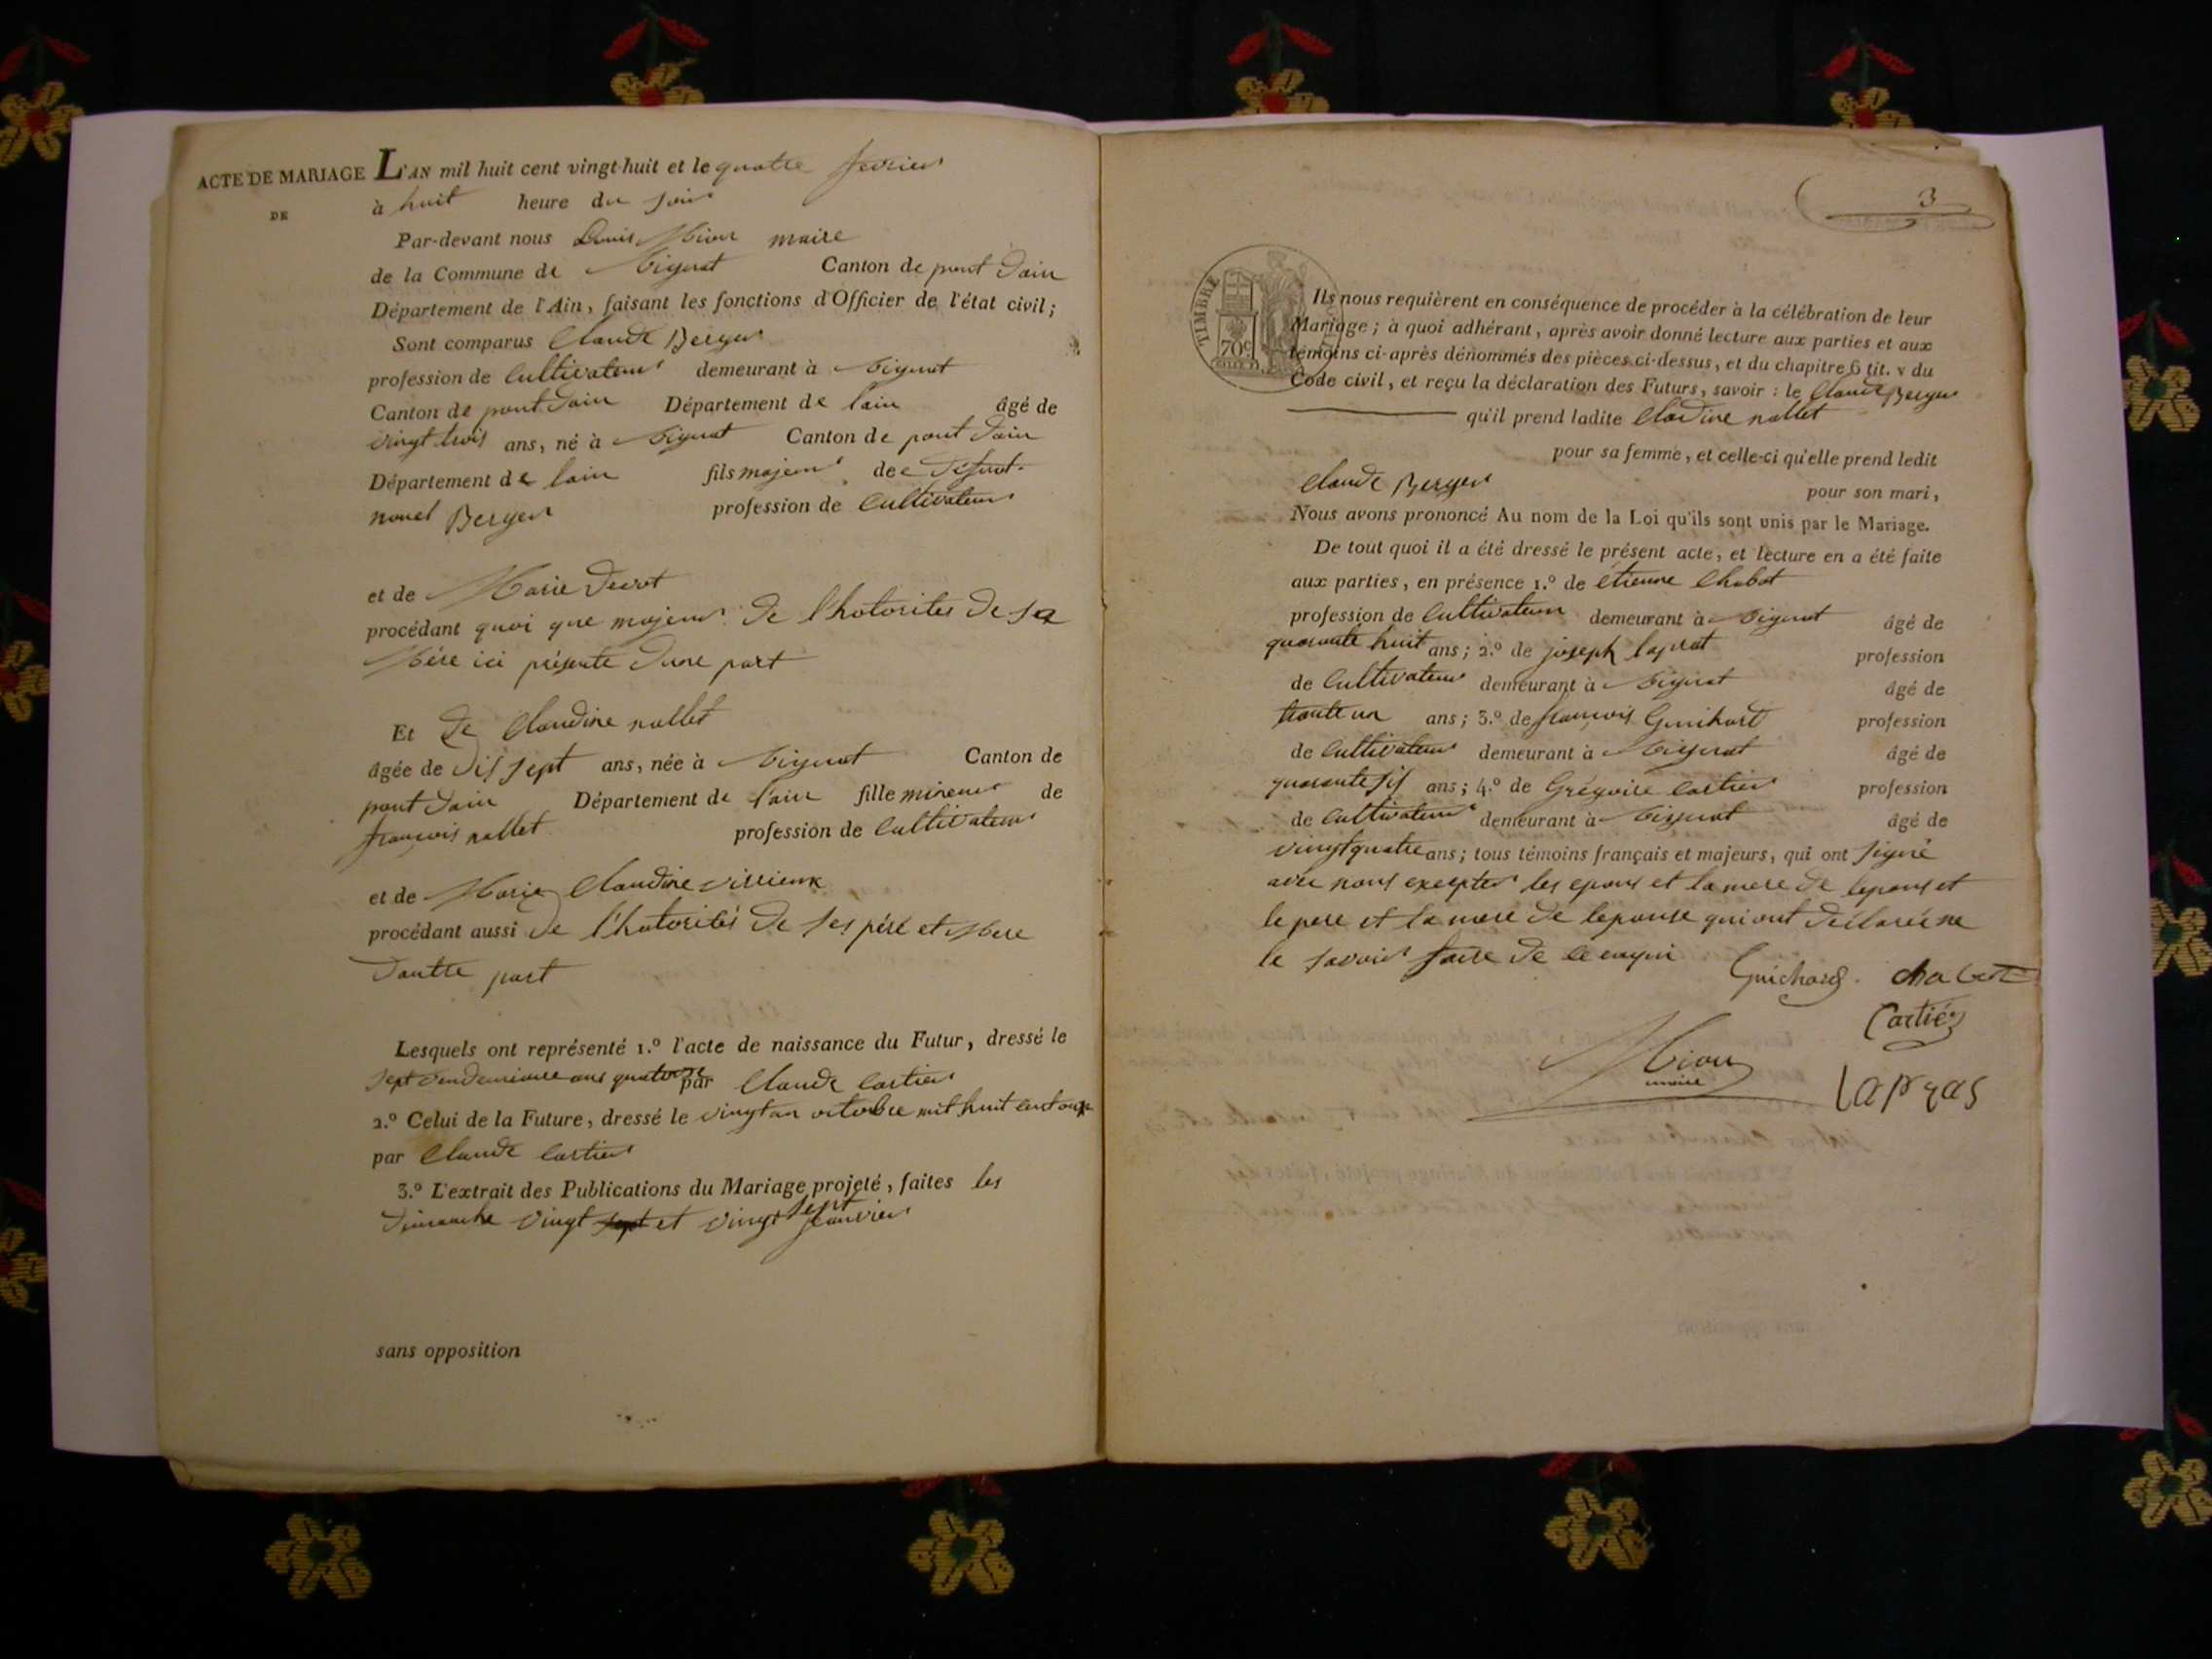 ACTE DE MARIAGE
DE
L'AN mil huit cent vingt-huit et le quatre fevrier
à huit heure du soir
Par-devant nous Louis maire
de la Commune de Canton de pont dain
Département de l'Ain, faisant les fonctions d'Officier de l'état civil;
Sont comparus Claude Berger
profession de Cultivateur demeurant à
Canton de pont dain Département de lain âgé de
vingt trois ans, né à Canton de pont dain
Département de lain fils majeur de
Berger profession de Cultivateur
et de Marie
procédant quoi que majeur de l'hotorites de sa
Mére ici présente dune part
Et de Claudine nallet
âgée de dis sept ans, née à Canton de
pont dain Département de l'ain fille mineur de
françois nallet profession de Cultivateur
et de Marie Claudine
procédant aussi de l'hotorités de ses pére et Mere
dautre part
Lesquels ont représenté 1.° l'acte de naissance du Futur, dressé le
sept vendemiaire ans quatorze par Claude Cartier
2.° Celui de la Future, dressé le vingt un octobre mil huit cent
par Claude Cartier
3.° L'extrait des Publications du Mariage projeté, faites les
sept
dimanche vingt sept et vingt janvier
sans opposition
3
TIMBRE
70c
Ils nous requièrent en conséquence de procéder à la célébration de leur
Mariage; à quoi adhérant, après avoir donné lecture aux parties et aux
témoins ci-après dénommés des pièces ci-dessus, et du chapitre 6 tit. v du
Code civil, et reçu la déclaration des Futurs, savoir : le Claude Berger
qu'il prend ladite Claudine nallet
pour sa femme, et celle-ci qu'elle prend ledit
Claude Berger pour son mari,
Nous avons prononcé Au nom de la Loi qu'ils sont unis par le Mariage.
De tout quoi il a été dressé le présent acte, et lecture en a été faite
aux parties, en présence 1.° de étienne Chabot
profession de Cultivateur demeurant à âgé de
quarante huit ans; 2.° de joseph profession
de Cultivateur demeurant à âgé de
trante un ans; 3.° de françois Guichard profession
de Cultivateur demeurant à âgé de
quarante sis ans; 4.° de Grégoire Cartier profession
de Cultivateur demeurant à âgé de
vingt quatre ans; tous témoins français et majeurs, qui ont signé
avec nous excepter les epous et la mere de lepous et
le pere et la mere de lepouse qui ont déclarée ne
le savoir faire de ce
Guichard. Chabot
Cartier
maire